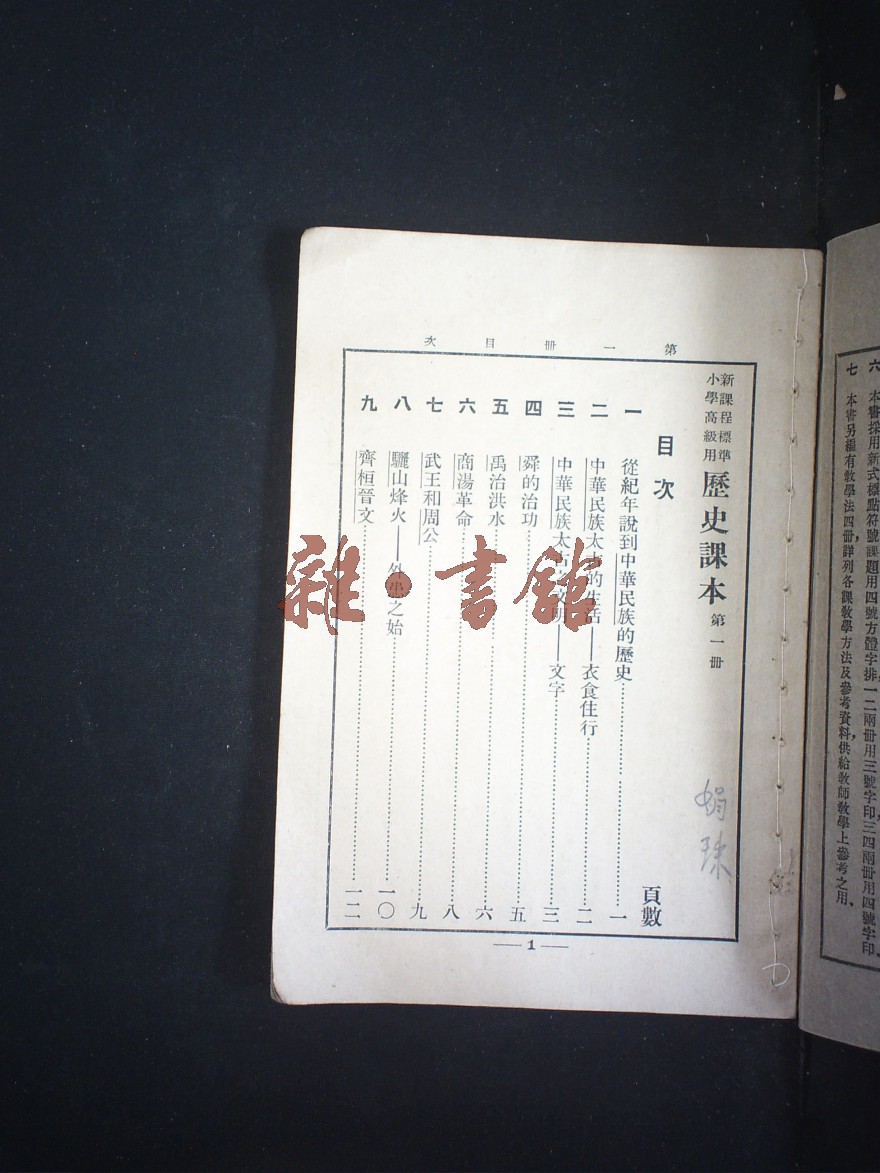 六 本書採用新式標點符號,課題用四號方體字排,一二兩冊用三號字印,三四兩冊用四號字印、
七 本書另編有教學法四冊,詳列各課教學方法及參考資料,供給教師教學上參考之用、
第一冊目次
新課程標準
小學高級用
歷史課本 第一冊
娟珠
目次 頁數
一 從紀年說到中華民族的歷史……一
二 中華民族太古的生活——衣食住行……二
三 中華民族太古的文明——文字……三
四 舜的治功……五
五 禹治洪水……六
六 商湯革命……八
七 武王和周公……九
八 驪山烽火——外患之始……一〇
九 齊桓晉文……一二
— 1 —
雜·書館